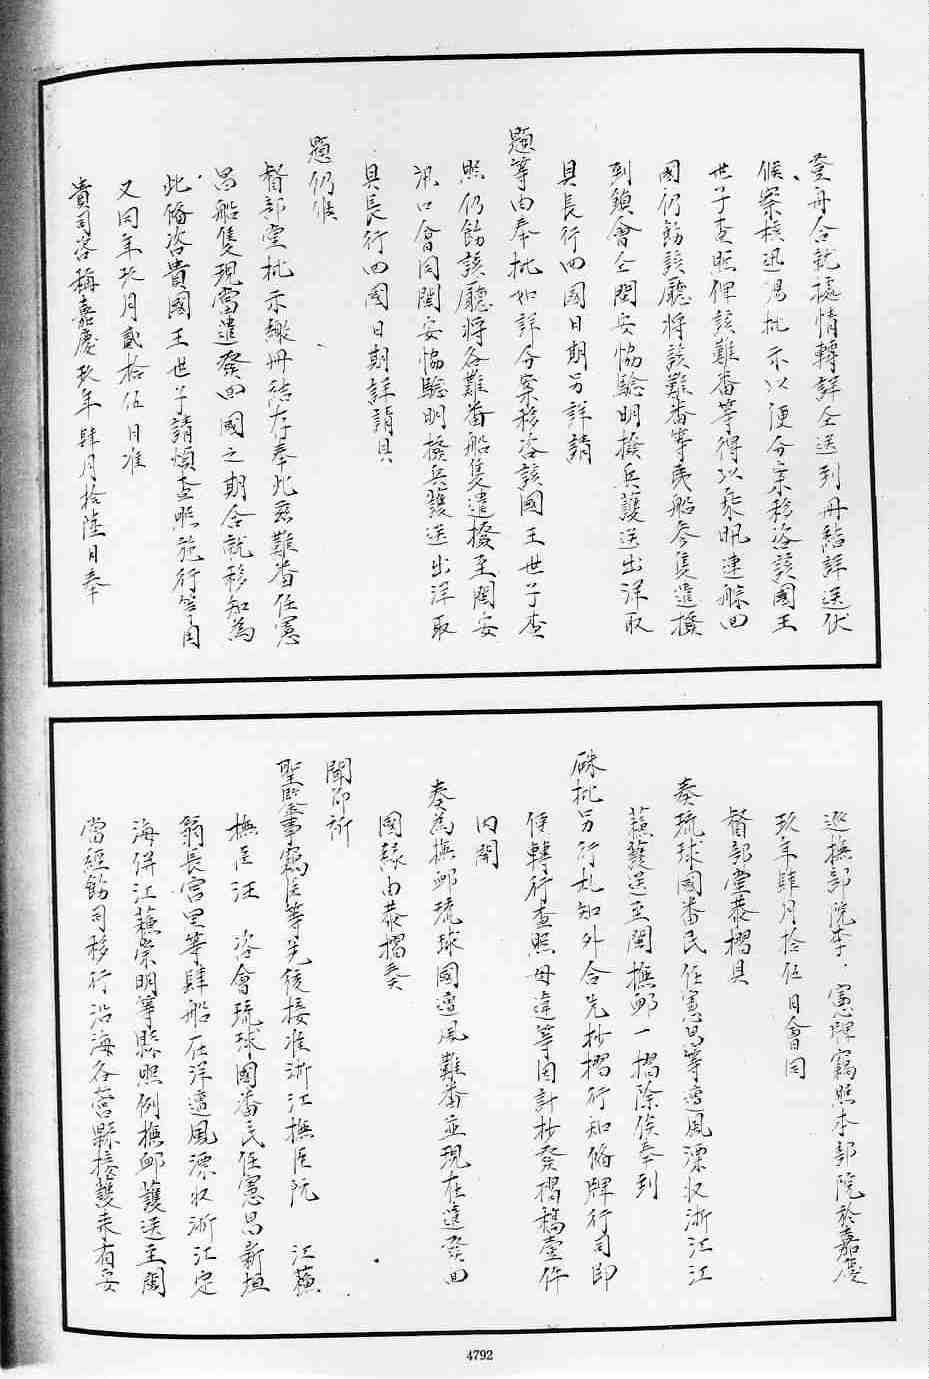 登舟合就據情轉詳仝送到冊結詳送伏
候案核迅賜批示以便分案移咨該國王
世子查照俾該難番等得以乘汛連䑸回
國仍飭該廳將該難番等民船叁隻遣撥
到鎮會仝閩安協驗明撥兵護送出洋取
具長行回國日期另詳請
題等由奉批如詳分案移咨該國王世子查
照仍飭該廳將各難番船隻遣撥至閩安
汛口會同閩安協驗明撥兵護送出洋取
具長行回國日期詳請具
題仍候
督部堂批示繳冊結存奉此茲難番任憲
昌船隻現當遣發回國之期合就移知為
此備咨貴國王世子請煩查照施行等因
又同年玖月貳拾伍日准
貴司咨稱嘉慶玖年肆月拾陸日奉
巡撫部院李 憲牌竊照本部院於嘉慶
玖年肆月拾伍日會同
督部堂恭摺具
奏琉球國番民任憲昌等遭風漂收浙江江
蘇護送至閩撫卹一摺除俟奉到
硃批另行札知外合先抄摺行知備牌行司即
便轉行查照毋違等因計抄發摺稿壹件
內開
奏為撫卹琉球國遭風難番並現在遣發回
國緣由恭摺奏
聞仰祈
聖鑒事竊臣等先後接准浙江撫臣阮 江蘇
撫臣汪 咨會琉球國番民任憲昌新垣
翁長宮里等肆船在洋遭風漂收浙江定
海併江蘇崇明等縣照例撫卹護送至閩
當經飭司移行沿海各營縣接護未有安
4792